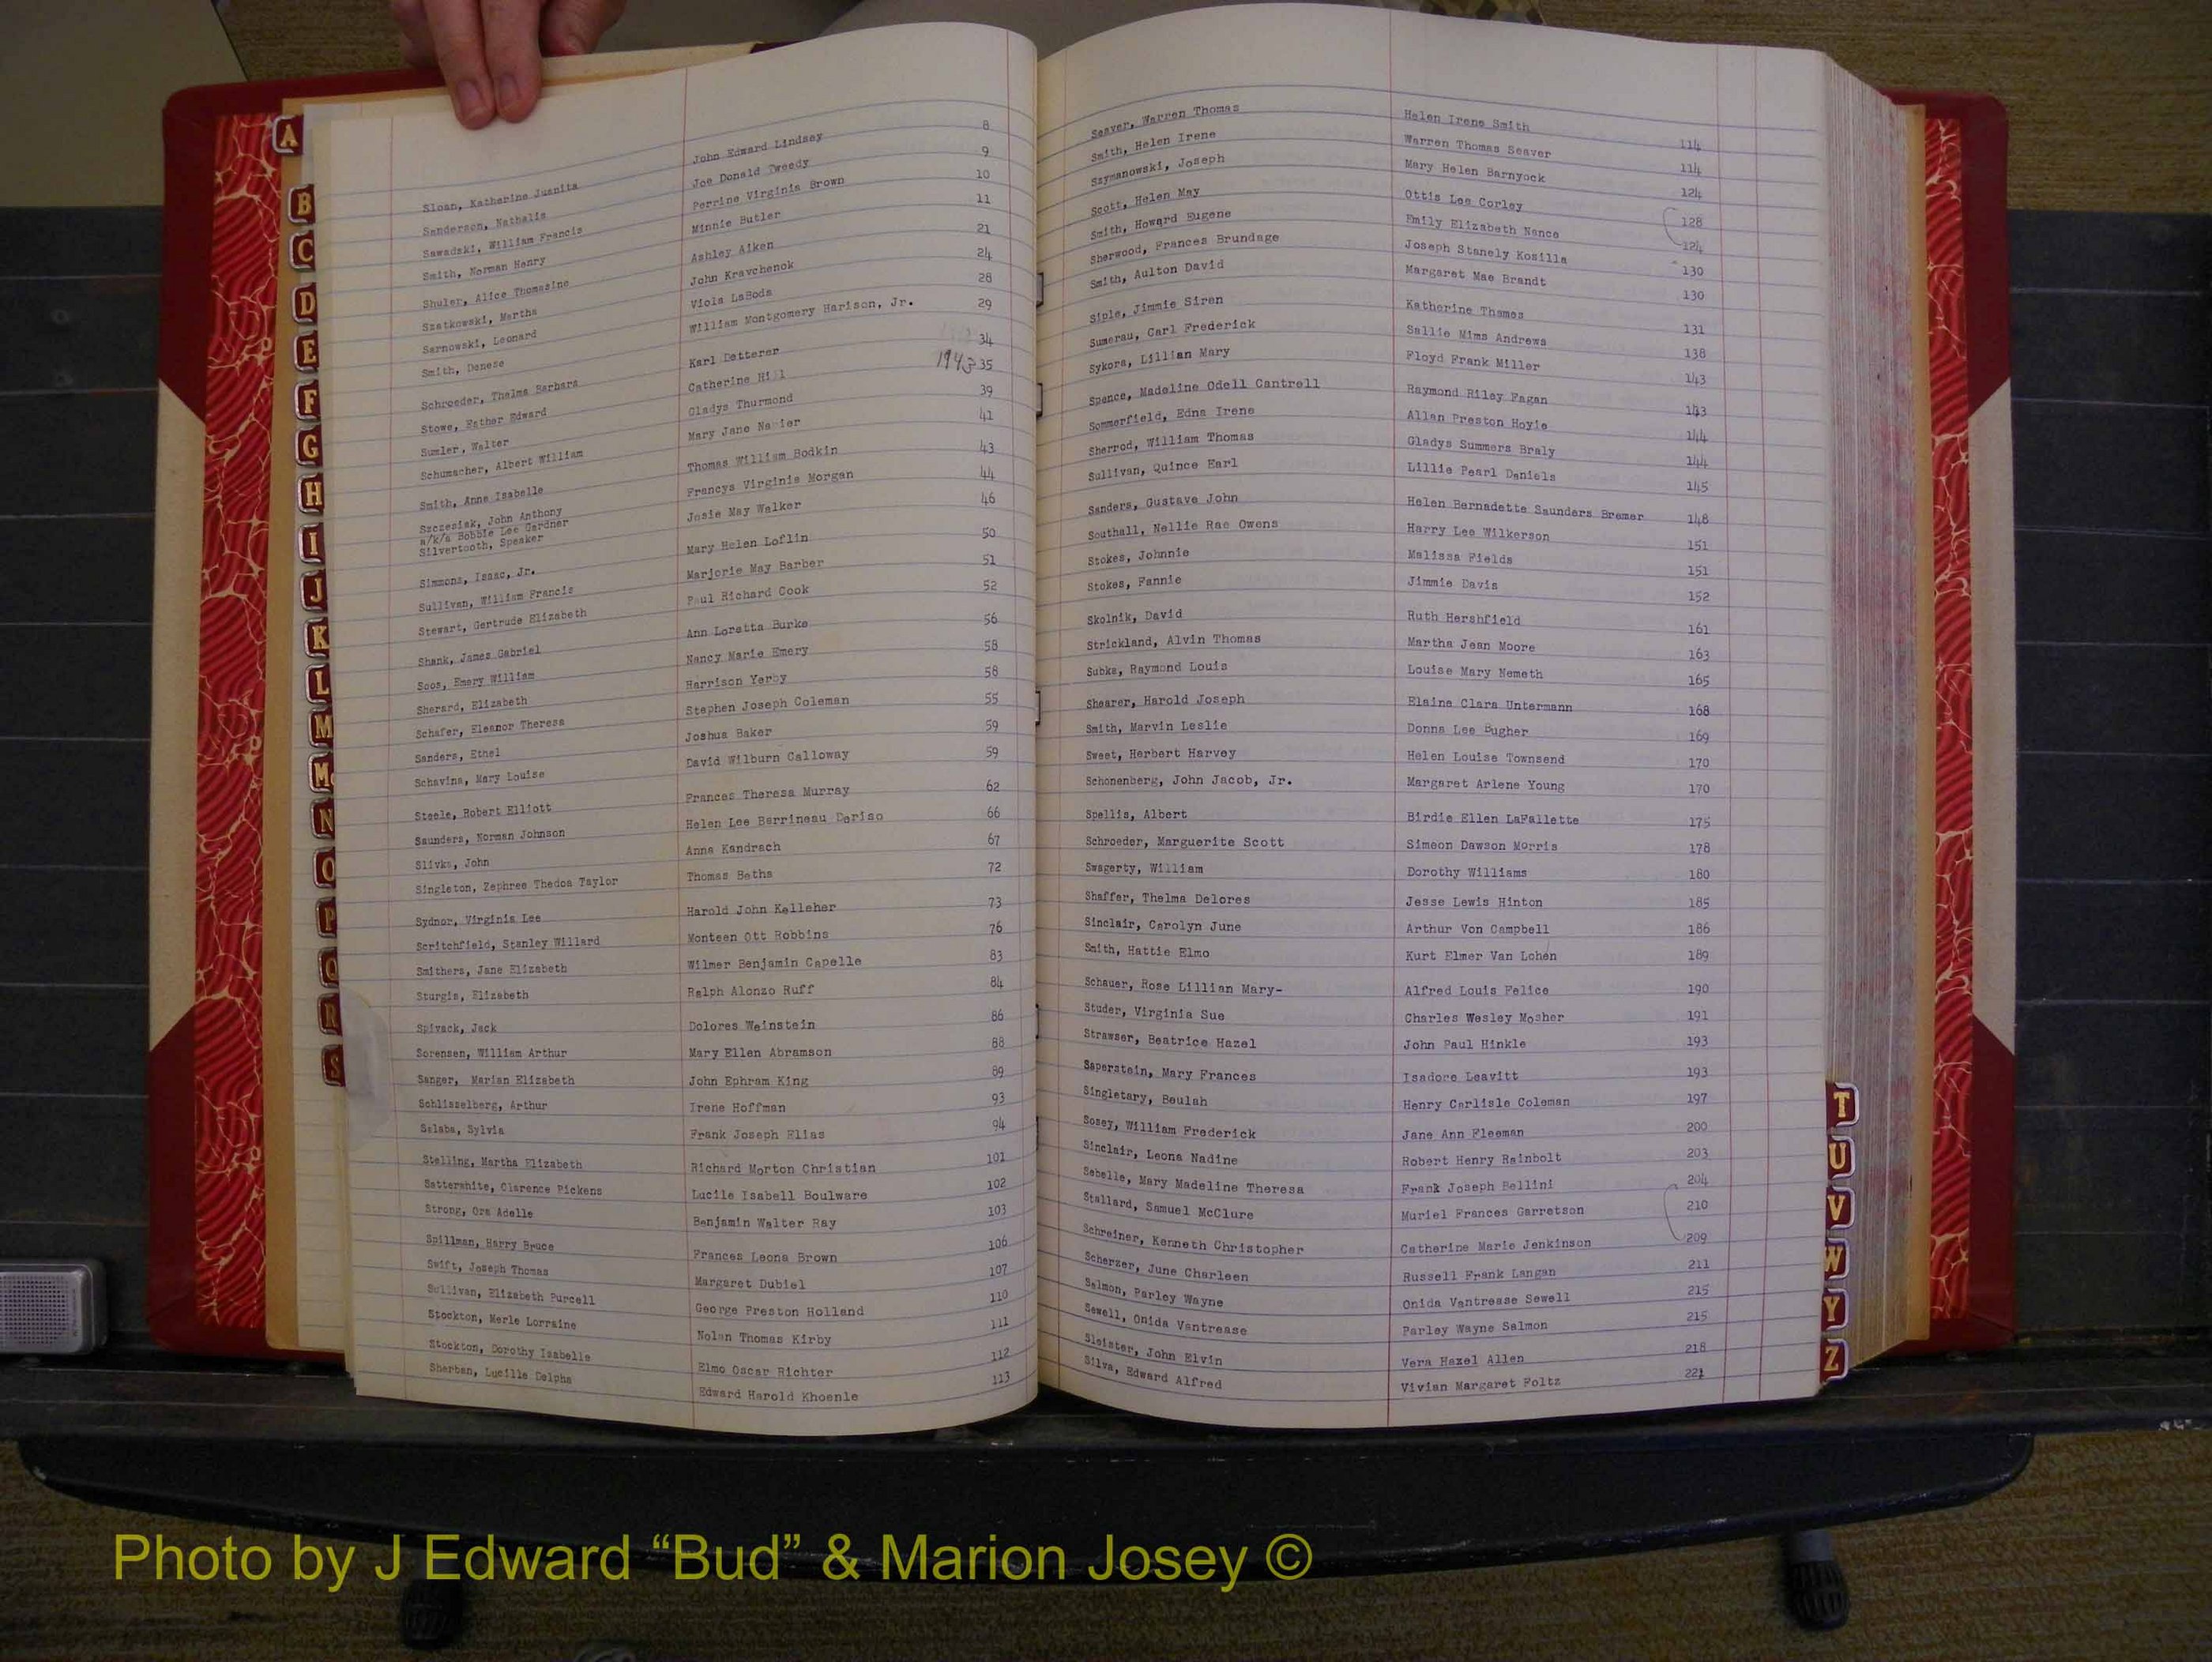 A
B
C
D
E
F
G
H
I
J
K
L
M
Mc
N
O
P
Q
R
S
Sloan, Katherine Juanita John Edward Lindsay 8
Sanderson, Nathalie Joe Donald Tweedy 9
Sawadski, William Francis Perrine Virginia Brown 10
Smith, Norman Henry Minnie Butler 11
Shuler, Alice Thomasine Ashley Aiken 21
Szatkowski, Martha John Kravchenok 24
Sarnowski, Leonard Viola LaBoda 28
Smith, Denese William Montgomery Harison, Jr. 29
Schroeder, Thelma Barbara Karl Detterer 34
Stowe, Esther Edward Catherine Hill 1943 35
Sumler, Walter Gladys Thurmond 39
Schumacher, Albert William Mary Jane Napier 41
Smith, Anne Isabelle Thomas William Bodkin 43
Szczesiak, John Anthony Francys Virginia Morgan 44
a/k/a Bobbie Lee Gardner
Silvertooth, Speaker Josie May Walker 46
Simmons, Isaac, Jr. Mary Helen Loflin 50
Sullivan, William Francis Marjorie May Barber 51
Stewart, Gertrude Elizabeth Paul Richard Cook 52
Shank, James Gabriel Ann Loretta Burke 56
Soos, Emery William Nancy Marie Emery 58
Sherard, Elizabeth Harrison Yerby 58
Schafer, Eleanor Theresa Stephen Joseph Coleman 55
Sanders, Ethel Joshua Baker 59
Schavina, Mary Louise David Wilburn Calloway 59
Steele, Robert Elliott Frances Theresa Murray 62
Saunders, Norman Johnson Helen Lee Berrineau Doriso 66
Slivka, John Anna Kandrach 67
Singleton, Zephree Thedoa Taylor Thomas Baths 72
Sydnor, Virginia Lee Harold John Kelleher 73
Scritchfield, Stanley Willard Monteen Ott Robbins 76
Smithers, Jane Elizabeth Wilmer Benjamin Capelle 83
Sturgis, Elizabeth Ralph Alonzo Ruff 84
Spivack, Jack Dolores Weinstein 86
Sorensen, William Arthur Mary Ellen Abramson 88
Sanger, Marian Elizabeth John Ephram King 89
Schlisselberg, Arthur Irene Hoffman 93
Salaba, Sylvia Frank Joseph Elias 94
Stelling, Martha Elizabeth Richard Morton Christian 101
Satterwhite, Clarence Pickens Lucile Isabell Boulware 102
Strong, Ora Adelle Benjamin Walter Ray 103
Spillman, Harry Bruce Frances Leona Brown 106
Swift, Joseph Thomas Margaret Dubiel 107
Sullivan, Elizabeth Purcell George Preston Holland 110
Stockton, Merle Lorraine Nolan Thomas Kirby 111
Stockton, Dorothy Isabelle Elmo Oscar Richter 112
Sherban, Lucille Delpha Edward Harold Khoenle 113
Seaver, Warren Thomas Helen Irene Smith 114
Smith, Helen Irene Warren Thomas Seaver 114
Szymanowski, Joseph Mary Helen Barnyock 124
Scott, Helen May Ottis Lee Corley 128
Smith, Howard Eugene Emily Elizabeth Nance 124
Sherwood, Frances Brundage Joseph Stanely Kosilla 130
Smith, Aulton David Margaret Mae Brandt 130
Siple, Jimmie Siren Katherine Thames 131
Sumerau, Carl Frederick Sallie Mims Andrews 138
Sykora, Lillian Mary Floyd Frank Miller 143
Spence, Madeline Odell Cantrell Raymond Riley Fagan 143
Sommerfield, Edna Irene Allan Preston Hoyle 144
Sherrod, William Thomas Gladys Summers Braly 144
Sullivan, Quince Earl Lillie Pearl Daniels 145
Sanders, Gustave John Helen Bernadette Saunders Bremer 148
Southall, Nellie Rae Owens Harry Lee Wilkerson 151
Stokes, Johnnie Malissa Fields 151
Stokes, Fannie Jimmie Davis 152
Skolnik, David Ruth Hershfield 161
Strickland, Alvin Thomas Martha Jean Moore 163
Subka, Raymond Louis Louise Mary Nemeth 165
Shearer, Harold Joseph Elaine Clara Untermann 168
Smith, Marvin Leslie Donna Lee Bugher 169
Sweet, Herbert Harvey Helen Louise Townsend 170
Schonenberg, John Jacob, Jr. Margaret Arlene Young 170
Spellis, Albert Birdie Ellen LaFallette 175
Schroeder, Marguerite Scott Simeon Dawson Morris 178
Swagerty, William Dorothy Williams 180
Shaffer, Thelma Delores Jesse Lewis Hinton 185
Sinclair, Carolyn June Arthur Von Campbell 186
Smith, Hattie Elmo Kurt Elmer Van Lohen 189
Schauer, Rose Lillian Mary- Alfred Louis Felice 190
Studer, Virginia Sue Charles Wesley Mosher 191
Strawser, Beatrice Hazel John Paul Hinkle 193
Saperstein, Mary Frances Isadore Leavitt 193
Singletary, Beulah Henry Carlisle Coleman 197
Sosey, William Frederick Jane Ann Fleeman 200
Sinclair, Leona Nadine Robert Henry Rainbolt 203
Sabelle, Mary Madeline Theresa Frank Joseph Bellini 204
Stallard, Samuel McClure Muriel Frances Garretson 210
Schreiner, Kenneth Christopher Catherine Marie Jenkinson 209
Scherzer, June Charleen Russell Frank Langan 211
Salmon, Parley Wayne Onida Vantrease Sewell 215
Sewell, Onida Vantrease Parley Wayne Salmon 215
Sleister, John Elvin Vera Hazel Allen 218
Silva, Edward Alfred Vivian Margaret Foltz 221
T
U
V
W
Y
Z
Photo by J Edward “Bud” & Marion Josey ©